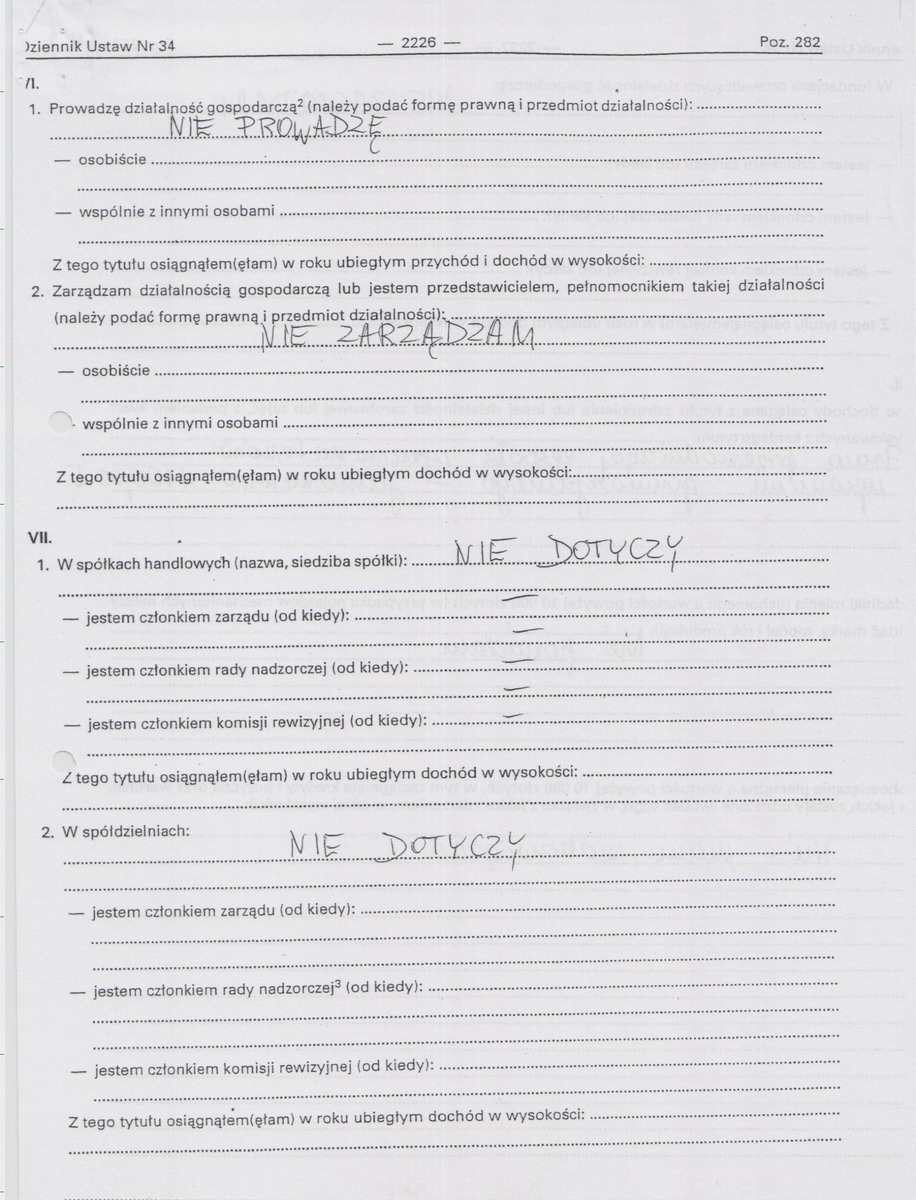 Dziennik Ustaw Nr 34 — 2226 — Poz. 282
VI.
1. Prowadzę działalność gospodarczą² (należy podać formę prawną i przedmiot działalności):
NIE PROWADZĘ
— osobiście
— wspólnie z innymi osobami
Z tego tytułu osiągnąłem(ęłam) w roku ubiegłym przychód i dochód w wysokości:
2. Zarządzam działalnością gospodarczą lub jestem przedstawicielem, pełnomocnikiem takiej działalności
(należy podać formę prawną i przedmiot działalności):
NIE ZARZĄDZAM
— osobiście
- wspólnie z innymi osobami
Z tego tytułu osiągnąłem(ęłam) w roku ubiegłym dochód w wysokości:
VII.
1. W spółkach handlowych (nazwa, siedziba spółki): NIE DOTYCZY
—
— jestem członkiem zarządu (od kiedy):
—
— jestem członkiem rady nadzorczej (od kiedy): —
—
— jestem członkiem komisji rewizyjnej (od kiedy): —
Z tego tytułu osiągnąłem(ęłam) w roku ubiegłym dochód w wysokości:
2. W spółdzielniach:
NIE DOTYCZY
— jestem członkiem zarządu (od kiedy):
— jestem członkiem rady nadzorczej³ (od kiedy):
— jestem członkiem komisji rewizyjnej (od kiedy):
Z tego tytułu osiągnąłem(ęłam) w roku ubiegłym dochód w wysokości: